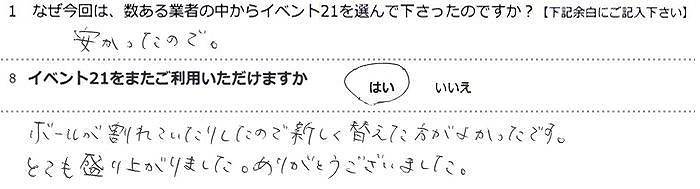 1 なぜ今回は、数ある業者の中からイベント21を選んで下さったのですか？【下記余白にご記入下さい】
安かったので。
8 イベント21をまたご利用いただけますか はい いいえ
ボールが割れていたりしたので新しく替えた方がよかったです。
とても盛り上がりました。ありがとうございました。